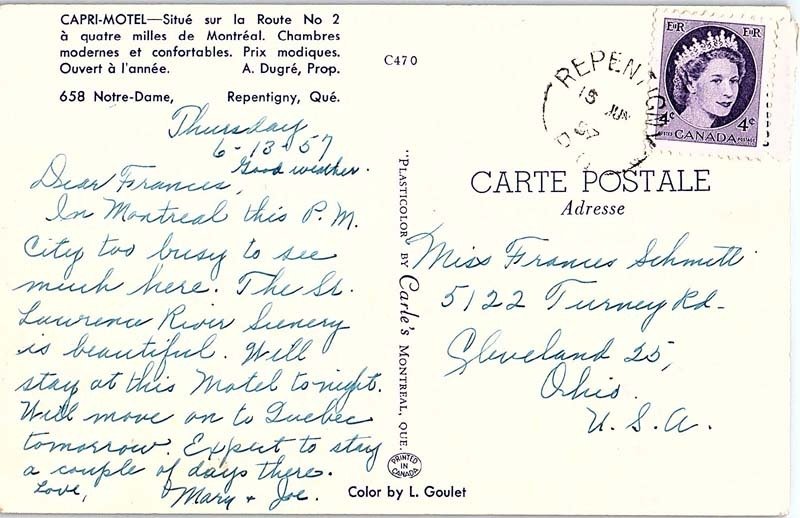 CAPRI-MOTEL—Situé sur la Route No 2
à quatre milles de Montréal. Chambres
modernes et confortables. Prix modiques.
Ouvert à l'année. A. Dugré, Prop.
658 Notre-Dame, Repentigny, Qué.
Thursday
6-13-57
Good weather.
Dear Frances,
In Montreal this P.M.
City too busy to see
much here. The St.
Lawrence River Scenery
is beautiful. Will
stay at this Motel tonight.
Will move on to Quebec
tomorrow. Expect to stay
a couple of days there.
Love,
Mary + Joe.
C470
"PLASTICOLOR" BY Carle's MONTREAL, QUE.
PRINTED
IN
CANADA
Color by L. Goulet
REPENTIGNY
15 JUN
57
EIIR EIIR
4¢ 4¢
POSTES CANADA POSTAGE
CARTE POSTALE
Adresse
Miss Frances Schmitt
5122 Turney Rd-
Cleveland 25,
Ohio.
U.S.A.